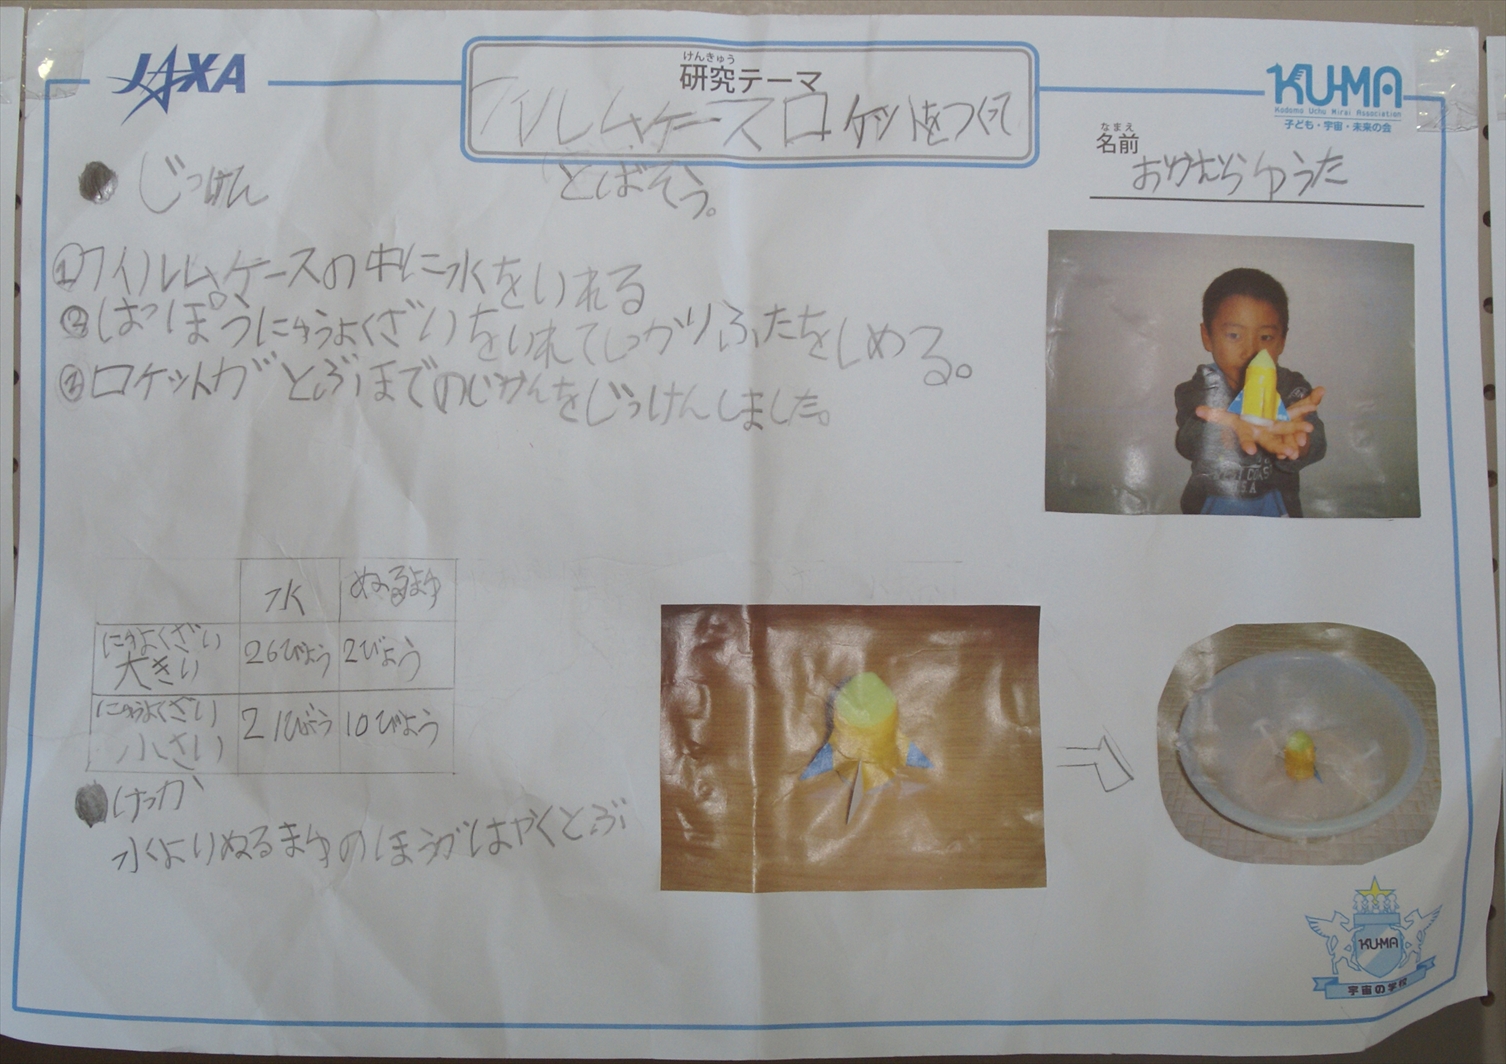 JAXA
けんきゅう
研究テーマ
フィルムケースロケットをつくって
とばそう。
KU-MA
Kodomo Uchu Mirai Association
子ども・宇宙・未来の会
なまえ
名前
おかむらゆうた
●じっけん
①フィルムケースの中に水をいれる
②はっぽうにゅうよくざいをいれてしっかりふたをしめる。
③ロケットがとぶまでのじかんをじっけんしました。
水 ぬるまゆ
にゅうよくざい
大きい 26びょう 2びょう
にゅうよくざい
小さい 21びょう 10びょう
●けっか
水よりぬるまゆのほうがはやくとぶ
WEST COAST
USA
KU-MA
宇宙の学校